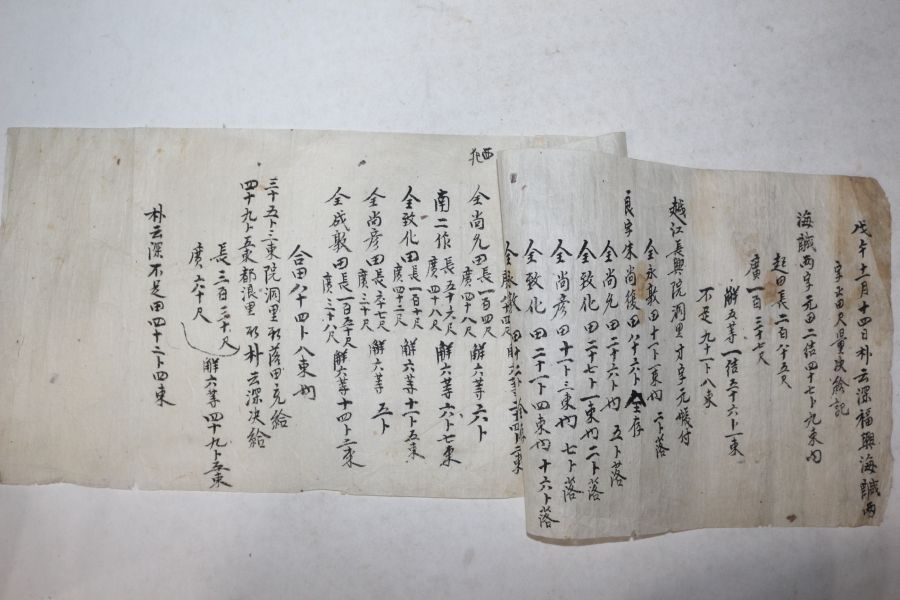 戊午十一月十四日朴云深福興海諴西
字出田尺量決給記
海諴西字元田二結四十七卜九束內
起田長二百八十五尺
廣一百三十七尺
解五等一結五十六卜一束
不足九十一卜八束
越江長興院洞里寸字元娥付
全永敦田十一卜一束內 二卜落
良字朱尚後田八十六卜全存
全尚允田二十六卜內 五卜落
全致化田二十七卜一束內二卜落
全尚彦田十一卜三束內 七卜落
全致化田二十一卜四束內十六卜落
西
全尚允田長一百四尺 廣四十八尺 解六等六卜
南二作長五十六尺 廣四十八尺 解六等六卜七束
全致化田長一百十尺 廣四十三尺 解六等十一卜五束
全尚彦田長六十七尺 廣三十尺 解六等 五卜
全成敦田長一百五十尺 廣三十八尺 解六等十四卜二束
合田八十四卜八束內
三十五卜三束院洞里 落田充給
四十九卜五束都浪里 朴云深決給
長三百二十尺
廣六十尺 解六等四十九卜五束
朴云深不足田四十二卜四束